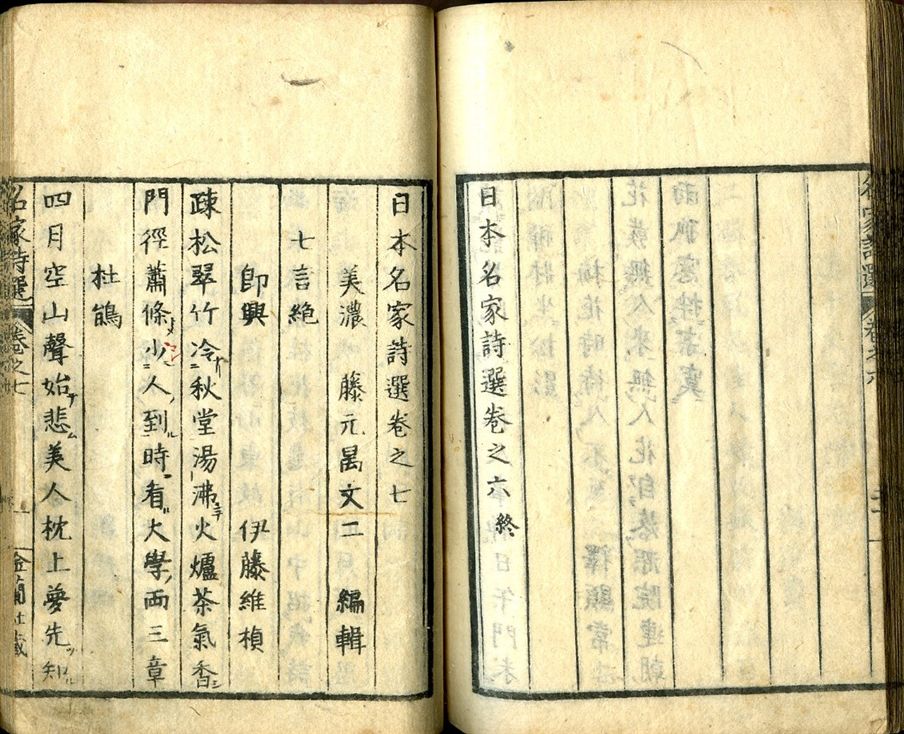 日本名家詩選卷之六終
日本名家詩選卷之七
美濃　藤元昺文二　編輯
七言絶
卽興　伊藤維楨
疎松翠竹冷秋堂湯沸火爐茶氣香
門徑蕭條少人到時看大學兩三章
杜鵑
四月空山聲始悲美人枕上夢先知
名家詩選　卷之七　金蘭社藏